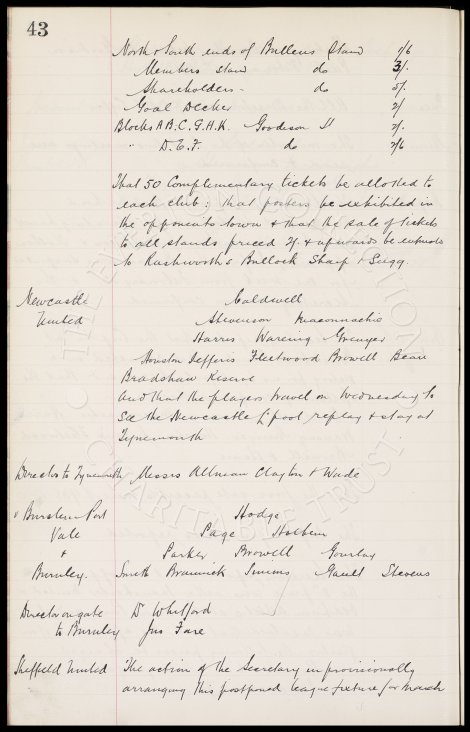 43
North & South ends of Bullens Stand 2/6
Members stand do 3/.
Shareholders - do 5/.
Goal Decker 2/
Blocks A.B.C.G.H.K. Goodison St 2/.
" D.E.F. do 2/6
That 50 Complimentary tickets be allotted to
each club; that posters be exhibited in
the opponents town & that the sale of tickets
to all stands priced 2/. & upwards be entrusted
to Rushworths Bullock Sharp & Sugg.
Newcastle United
Caldwell
Stevenson Maconnachie
Harris Wareing Grenyer
Houston Jefferis Fleetwood Browell Beare
Bradshaw Reserve
And that the players travel on Wednesday to
see the Newcastle L'pool replay & stay at
Tynemouth
Director to Tynemouth, Messrs Allman Clayton & Wade
v Burslem Port Vale & Burnley.
Hodge
Page Holbem
Parker Browell Gourlay
Smith Brannick Simms Gault Stevens
Director on gate to Burnley
D Whitford
Jno Fare
Sheffield United
The action of the Secretary in provisionally
arranging this postponed league fixture for March
THE EVERTON COLLECTION
CHARITABLE TRUST